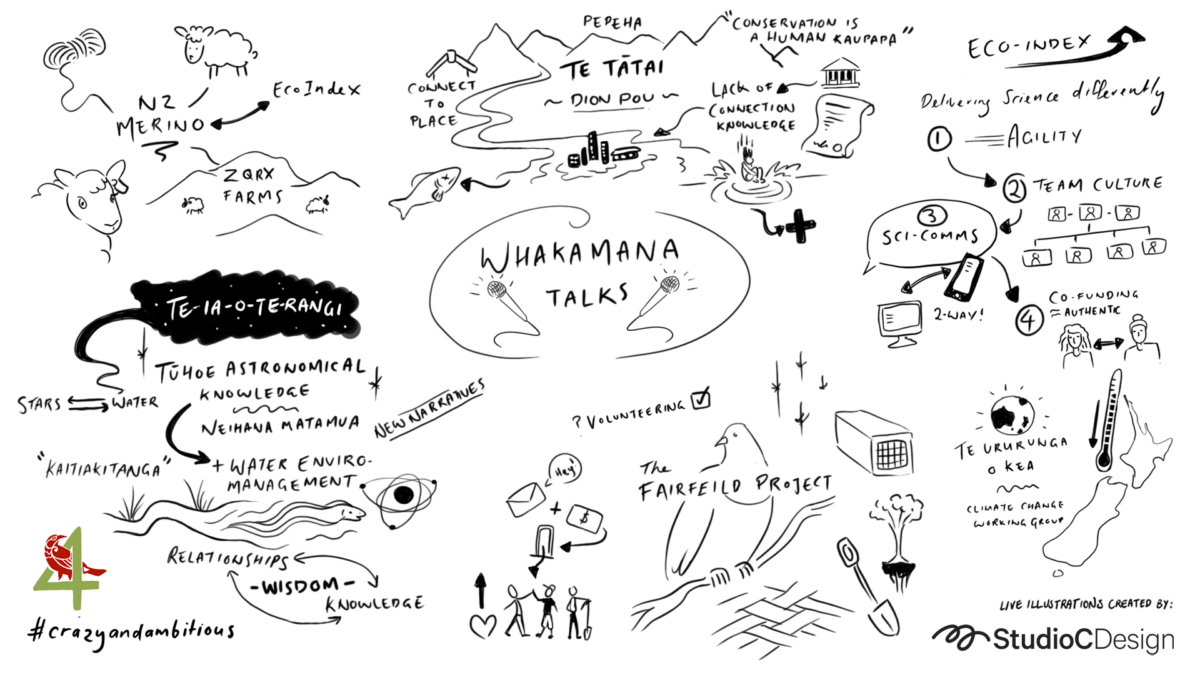 NZ
MERINO
EcoIndex
ZQRX
FARMS
PEPEHA
TE TĀTAI
~ DION POU ~
CONNECT
TO
PLACE
"CONSERVATION IS
A HUMAN KAUPAPA"
LACK OF
CONNECTION
KNOWLEDGE
ECO-INDEX
Delivering Science differently
1 AGILITY
2 TEAM CULTURE
3
SCI-COMMS
2-WAY!
4
CO-FUNDING
= AUTHENTIC
WHAKAMANA
TALKS
TE-IA-O-TE-RANGI
TŪHOE ASTRONOMICAL
KNOWLEDGE
NEIHANA MATAMUA
STARS
WATER
"KAITIAKITANGA"
+ WATER ENVIRO-
MANAGEMENT
NEW NARRATIVES
RELATIONSHIPS
-WISDOM-
KNOWLEDGE
? VOLUNTEERING
Hey!
+ $
The
FAIRFEILD PROJECT
TE URURUNGA
O KEA
CLIMATE CHANGE
WORKING GROUP
4
#crazyandambitious
LIVE ILLUSTRATIONS CREATED BY:
StudioCDesign